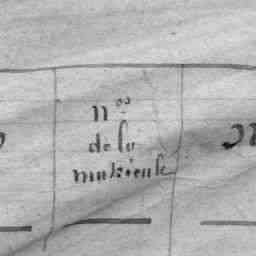 nos
de la
matricule